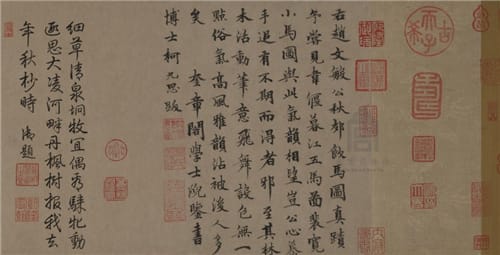 古希天子
壽
右趙文敏公秋郊飲馬圖真蹟
予嘗見韋偃暮江五馬圖裴寬
小馬圖與此氣韻相望豈公心慕
手追有不期而得者邪至其林
木活動筆意飛舞設色無一
點俗氣高風雅韻沾被後人多
矣 奎章閣學士院鑒書
博士柯九思跋
細草清泉坰牧宜偶看騋牝動
遐思大凌河畔丹楓樹報我去
年秋杪時 御題